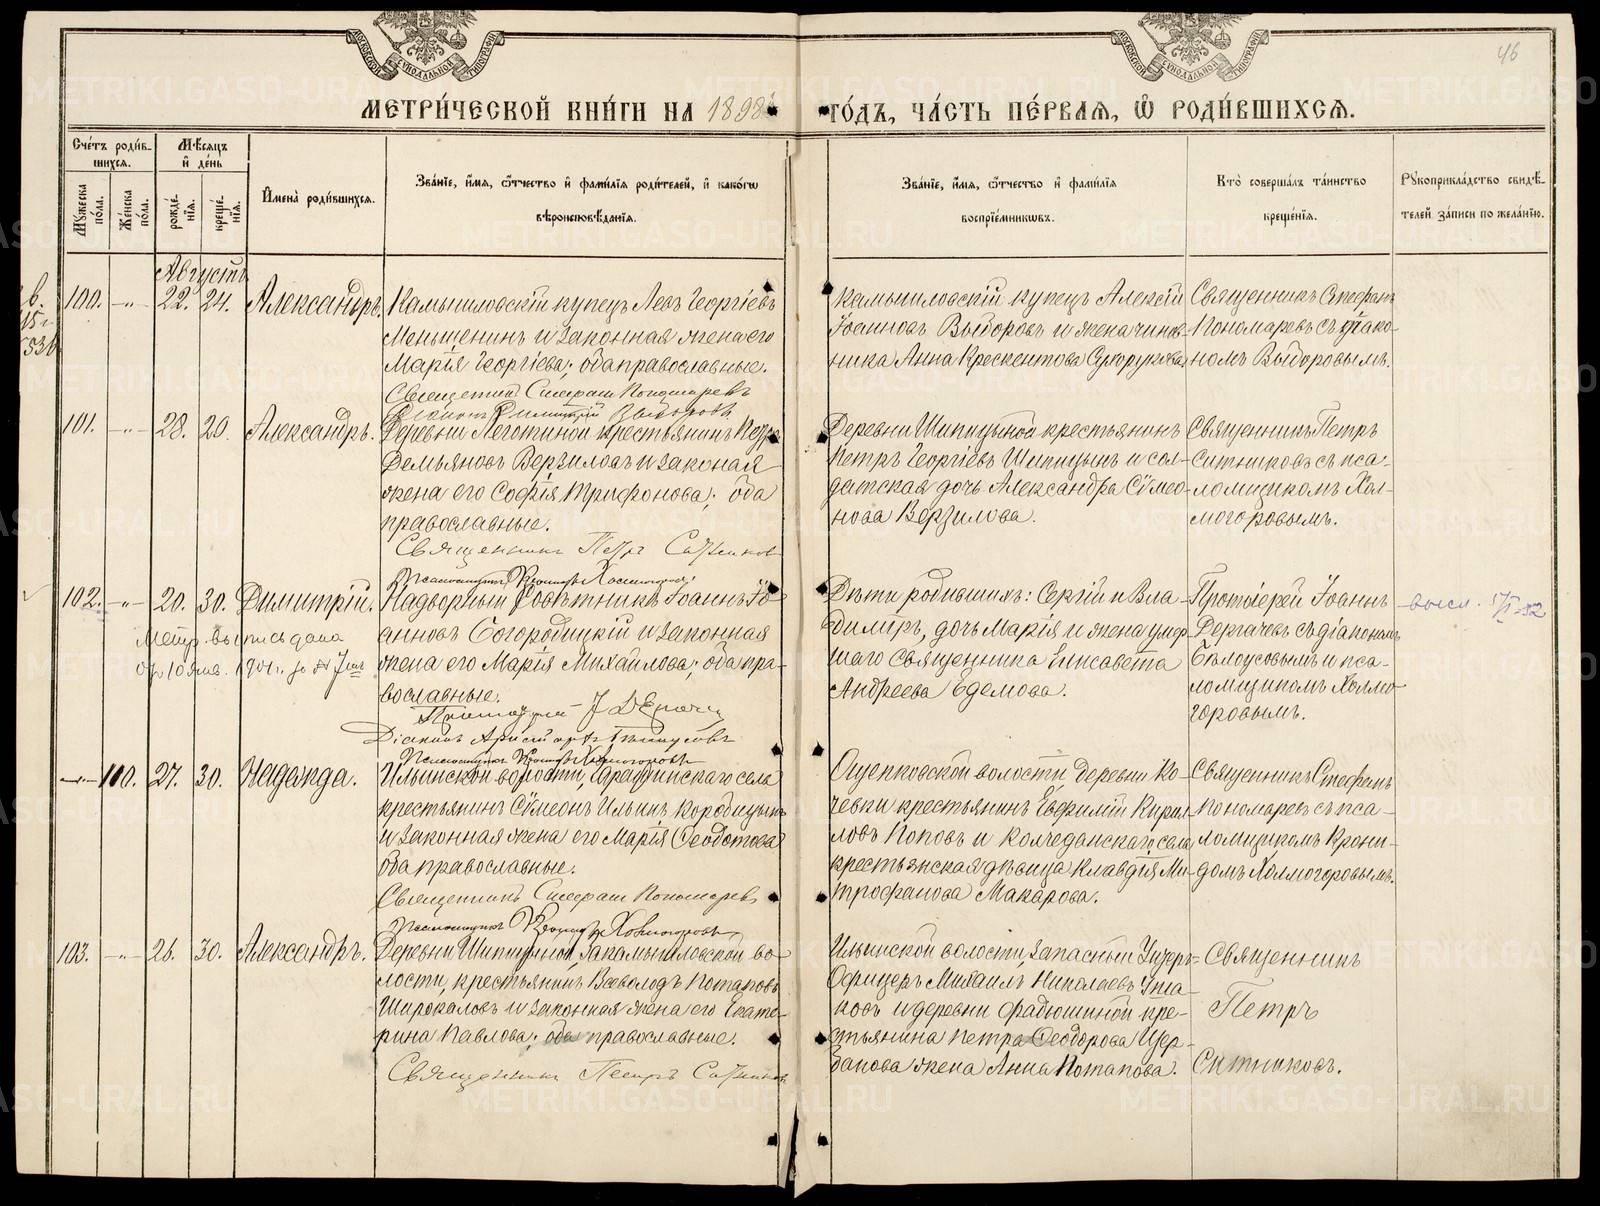 46
МЕТРИ́ЧЕСКОЙ КНИ́ГИ НА 1898 ГО́ДЪ, ЧА́СТЬ ПЕ́РВАѦ, Ѡ РОДИ́ВШИХСѦ.
Сче́тъ роди́в-
шихся.
Мѣ́сяцъ
и де́нь
Мꙋ́жеска по́ла.
Же́нска по́ла.
рожде́-нїя.
креще́-нїя.
Имена̀ роди́вшихся.
Зва́нїе, и́мя, ѻ́тчество и фами́лїя роди́телей, и како́гѡ
вѣроисповѣ́данїя.
Зва́нїе, и́мя, ѻ́тчество и фами́лїя
воспрїе́мниковъ.
Кто̀ соверша́лъ та́инство
креще́нїя.
Рꙋкоприкла́дство свидѣ́-
телей за́писи по жела́нїю.
Августъ
100. -„- 22. 24. Александръ.
Камышловскій купецъ Левъ Георгіевъ
Меньшенинъ и законная жена его
Марія Георгіева; оба православные.
Священникъ Стефанъ Пономаревъ
Камышловскій купецъ Алексій
Іоанновъ Выборовъ и жена чинов-
ника Анна Крескентова Сухорукова.
Священникъ Стефанъ
Пономаревъ съ діако-
номъ Выборовымъ.
101. -„- 28. 29. Александръ.
Деревни Леготиной крестьянинъ
Демьяновъ Верзиловъ и законная
жена его Софія Трифонова; оба
православные.
Священникъ Петръ Ситниковъ
Деревни Шипицыной крестьянинъ
Петръ Георгіевъ Шипицынъ и сол-
датская дочь Александра Сѵмео-
нова Верзилова.
Священникъ Петръ
Ситниковъ съ пса-
ломщикомъ Хол-
могоровымъ.
102. -„- 20. 30. Димитрій.
Метр. выпись дана
Надворный Совѣтникъ Іоаннъ Іо-
анновъ Богородицкій и законная
жена его Марія Михайлова; оба пра-
вославные.
Дѣти родившихъ: Сергій и Вла-
димиръ, дочь Марія и жена умер-
шаго священника Елисавета
Андреева Едемова.
Протоіерей Іоаннъ
Дергачевъ съ діакономъ
Бѣлоусовымъ и пса-
ломщикомъ Холмо-
горовымъ.
-„- 100. 27. 30. Надежда.
Ильинской волости, села
крестьянинъ Сѵмеонъ Ильинъ Коробицынъ
и законная жена его Марія Ѳеодотова
оба православные.
Священникъ Стефанъ Пономаревъ
волости деревни Ко-
чевки крестьянинъ Евфимій Кирил-
ловъ Поповъ и Колчеданскаго села
крестьянская дѣвица Клавдія Ми-
трофанова Макарова.
Священникъ Стефанъ
Пономаревъ съ пса-
ломщикомъ Крони-
домъ Холмогоровымъ.
103. -„- 26. 30. Александръ.
Деревни Шипицыной, Закамышловской во-
лости, крестьянинъ Всеволодъ Потаповъ
Широкаловъ и законная жена его Екате-
рина Павлова; оба православные.
Священникъ Петръ Ситниковъ
Ильинской волости, запасный Унтеръ=
Офицеръ Михаилъ Николаевъ Уша-
ковъ и деревни Фадюшиной кре-
стьянина Петра Ѳеодорова Щер-
бакова жена Анна Потапова.
Священникъ
Петръ
Ситниковъ.
METRIKI.GASO-URAL.RU